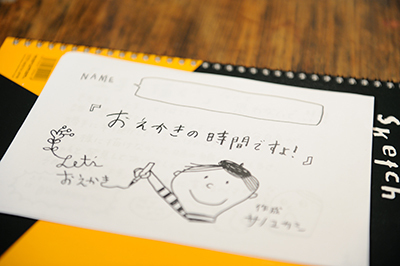 NAME
『おえかきの時間ですよ!』
Let's
おえかき
作成
サノユカシ
Sketch